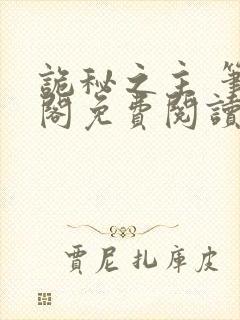 詭秘之主 筆
閣免費閱讀
賈尼扎庫皮